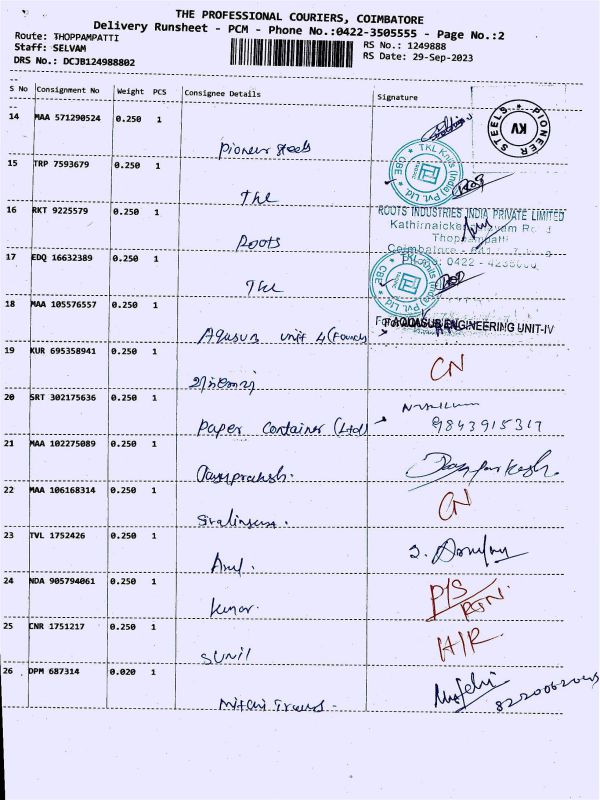 THE PROFESSIONAL COURIERS, COIMBATORE
Delivery Runsheet - PCM - Phone No.:0422-3505555 - Page No.:2
Route: THOPPAMPATTI
RS No.: 1249888
Staff: SELVAM
RS Date: 29-Sep-2023
DRS No.: DCJB124988802
S No Consignment No Weight PCS Consignee Details Signature
14 MAA 571290524 0.250 1
Pioneer Steels
PIONEER STEELS KV
TKL Knits (India) Pvt. Ltd. CBE
15 TRP 7593679 0.250 1
The
16 RKT 9225579 0.250 1
Roots
ROOTS INDUSTRIES INDIA PRIVATE LIMITED
Thoppampatti
17 EDQ 16632389 0.250 1
The
TKL Knits (India) Pvt. Ltd. CBE
18 MAA 105576557 0.250 1
Aquasub unit 4
For AQUASUB ENGINEERING UNIT-IV
19 KUR 695358941 0.250 1
CN
20 SRT 302175636 0.250 1
Paper Container (Ltd)
9843915317
21 MAA 102275089 0.250 1
Jayaprakash.
22 MAA 106168314 0.250 1
CN
23 TVL 1752426 0.250 1
Arul.
24 NDA 905794061 0.250 1
Kumar.
P/S
RTN.
25 CNR 1751217 0.250 1
SUNIL
H/R.
26 DPM 687314 0.020 1